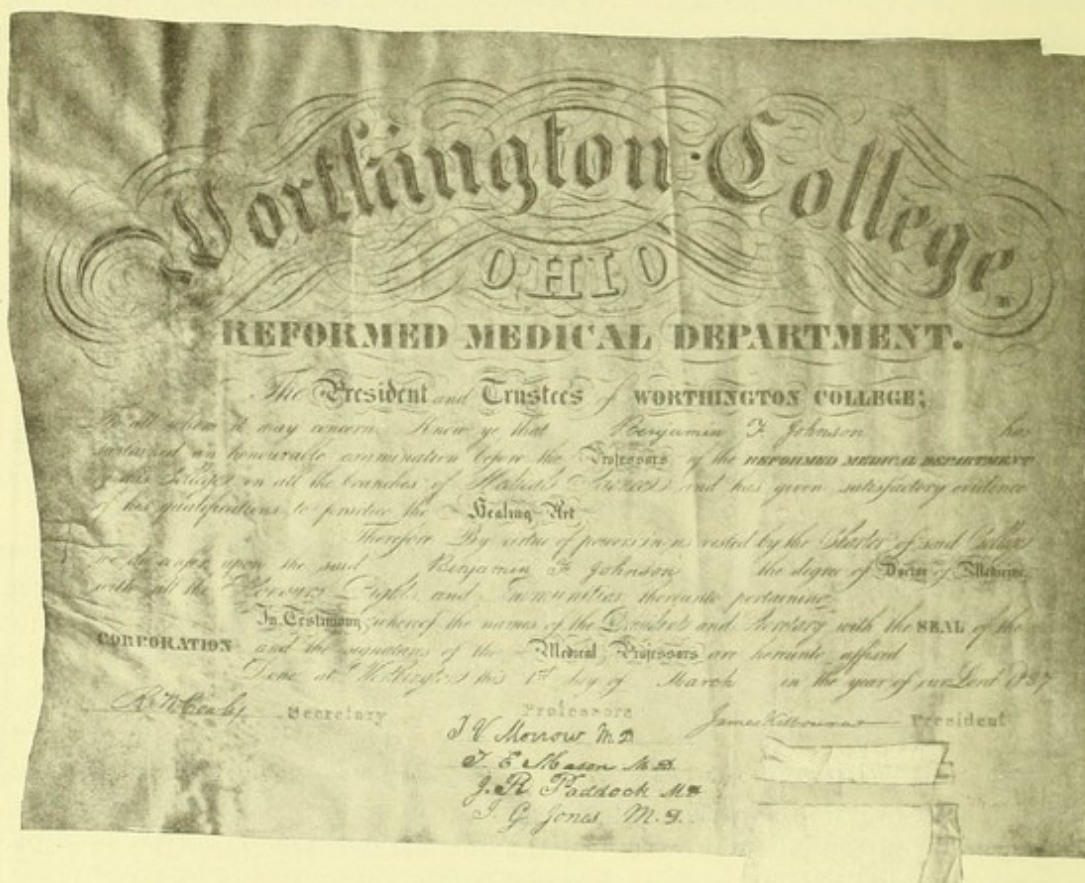 Worthington College
OHIO
REFORMED MEDICAL DEPARTMENT.
The President and Trustees of WORTHINGTON COLLEGE;
To all whom it may concern Know ye that Benjamin F. Johnson has
sustained an honourable examination before the Professors of the REFORMED MEDICAL DEPARTMENT
of this College in all the branches of Medical Sciences and has given satisfactory evidence
of his qualifications to practice the Healing Art
Therefore By virtue of powers in us vested by the Charter of said College
we do confer upon the said Benjamin F Johnson the degree of Doctor of Medicine,
with all the Honours Rights and Immunities thereunto pertaining
In Testimony whereof the names of the President and Secretary with the SEAL of the
CORPORATION and the signatures of the Medical Professors are hereunto affixed
Done at Worthington this 1st day of March in the year of our Lord 1837
Secretary Professors James Kilbourne President
J V Morrow M D
T. E Mason M. D.
J. R Paddock M D
I. G Jones M. D.